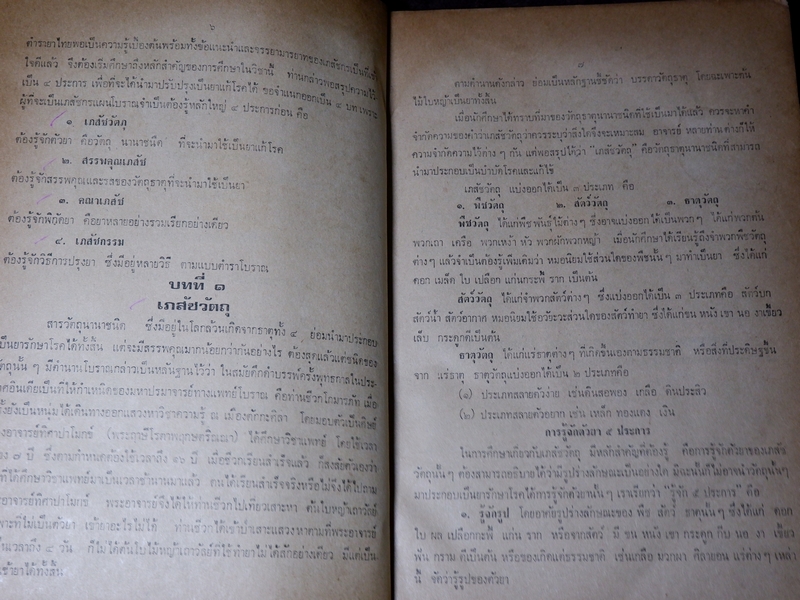 ๖
ตำรายาไทยพอเป็นความรู้เบื้องต้นพร้อมทั้งข้อแนะนำและจรรยามารยาทของเภสัชกรเป็นที่เข้า
ใจดีแล้ว จึงต้องเริ่มศึกษาถึงหลักสำคัญของการศึกษาในวิชานี้ ท่านกล่าวพอสรุปความไว้
เป็น ๔ ประการ เพื่อที่จะได้นำมาปรับปรุงเป็นยาแก้โรคได้ ขอจำแนกออกเป็น ๔ บท เพราะ
ผู้ที่จะเป็นเภสัชกรแผนโบราณจำเป็นต้องรู้หลักใหญ่ ๔ ประการก่อน คือ
๑ เภสัชวัตถุ
ต้องรู้จักตัวยา คือวัตถุ นานาชนิด ที่จะนำมาใช้เป็นยาแก้โรค
๒. สรรพคุณเภสัช
ต้องรู้จักสรรพคุณและรสของวัตถุธาตุที่จะนำมาใช้เป็นยา
๓. คณาเภสัช
ต้องรู้จักพิกัดยา คือยาหลายอย่างรวมเรียกอย่างเดียว
๔. เภสัชกรรม
ต้องรู้จักวิธีการปรุงยา ซึ่งมีอยู่หลายวิธี ตามแบบตำราโบราณ
บทที่ ๑
เภสัชวัตถุ
สารวัตถุนานาชนิด ซึ่งมีอยู่ในโลกล้วนเกิดจากธาตุทั้ง ๔ ย่อมนำมาประกอบ
เป็นยารักษาโรคได้ทั้งสิ้น แต่จะมีสรรพคุณมากน้อยกว่ากันอย่างไร ต้องสุดแล้วแต่ชนิดของ
วัตถุนั้น ๆ มีตำนานโบราณกล่าวเป็นหลักฐานไว้ว่า ในสมัยดึกดำบรรพ์ครั้งพุทธกาลในประ-
เทศอินเดียเป็นที่ให้กำเนิดของมหาปรมาจารย์ทางแพทย์โบราณ คือท่านชีวกโกมารภัจ เมื่อ
ครั้งยังเป็นหนุ่มได้เดินทางออกแสวงหาวิชาความรู้ ณ เมืองตักกะศิลา โดยมอบตัวเป็นศิษย์
ของอาจารย์ทิศาปาโมกข์ (พระฤาษีโรคาพฤกษตรีณณา) ได้ศึกษาวิชาแพทย์ โดยใช้เวลา
ของ ๗ ปี ซึ่งตามกำหนดต้องใช้เวลาถึง ๑๖ ปี เมื่อชีวกเรียนสำเร็จแล้ว ก็สงสัยตัวเองว่า
ที่ได้ศึกษาวิชาแพทย์มาเป็นเวลาช้านานมาแล้ว ตนได้เรียนสำเร็จจริงหรือไม่จึงได้ไปถาม
อาจารย์ทิศาปาโมกข์ พระอาจารย์จึงได้ให้ท่านชีวกไปเที่ยวเสาะหา ต้นใบหญ้าเถาวัลย์
เพาะที่ไม่เป็นตัวยา เข้ายาอะไรไม่ได้ ท่านชีวกได้เข้าป่าเสาะแสวงหาตามที่พระอาจารย์
ในเวลาถึง ๔ วัน ก็ไม่ได้ต้นใบไม้หญ้าเถาวัลย์ที่ใช้ทำยาไม่ได้สักอย่างเดียว มีแต่เป็น
เข้ายาได้ทั้งสิ้น
๘
ตามตำนานดังกล่าว ย่อมเป็นหลักฐานชี้ชัดว่า บรรดาวัตถุธาตุ โดยฉะเพาะต้น
ไม้ใบหญ้าเป็นยาทั้งสิ้น
เมื่อนักศึกษาได้ทราบที่มาของวัตถุธาตุนานาชนิดที่ใช้เป็นมาได้แล้ว ควรจะหาคำ
จำกัดความของคำว่าเภสัชวัตถุว่าควรระบุว่าสิ่งใดจึงจะเหมาะสม อาจารย์ หลายท่าน ต่างก็ให้
ความจำกัดความไว้ต่าง ๆ กัน แต่พอสรุปได้ว่า "เภสัชวัตถุ" คือวัตถุธาตุนานาชนิดที่สามารถ
นำมาประกอบเป็นบำบัดโรคและแก้ไข้
เภสัชวัตถุ แบ่งออกได้เป็น ๓ ประเภท คือ
๑. พืชวัตถุ ๒. สัตว์วัตถุ ๓. ธาตุวัตถุ
พืชวัตถุ ได้แก่พืชพันธุ์ไม้ต่างๆ ซึ่งอาจแบ่งออกได้เป็นพวกๆ ได้แก่พวกต้น
พวกเถา เครือ พวกเหง้า หัว พวกผักพวกหญ้า เมื่อนักศึกษาได้เรียนรู้ถึงจำพวกพืชวัตถุ
ต่างๆ แล้วจำเป็นต้องรู้เพิ่มเติมว่า หมอนิยมใช้ส่วนใดของพืชนั้นๆ มาทำเป็นยา ซึ่งได้แก่
ดอก เมล็ด ใบ เปลือก แก่นกระพี้ ราก เป็นต้น
สัตว์วัตถุ ได้แก่จำพวกสัตว์ต่างๆ ซึ่งแบ่งออกได้เป็น ๓ ประเภทคือ สัตว์บก
สัตว์น้ำ สัตว์อากาศ หมอนิยมใช้อวัยะวะส่วนใดของสัตว์ทำยา ซึ่งได้แก่ขน หนัง เขา นอ งาเขี้ยว
เล็บ กระดูกดีเป็นต้น
ธาตุวัตถุ ได้แก่แร่ธาตุต่างๆ ที่เกิดขึ้นเองตามธรรมชาติ หรือสิ่งที่ประดิษฐขึ้น
จาก แร่ธาตุ ธาตุวัตถุแบ่งออกได้เป็น ๒ ประเภทคือ
(๑) ประเภทสลายตัวง่าย เช่นดินสอพอง เกลือ ดินประสิว
(๒) ประเภทสลายตัวยาก เช่น เหล็ก ทองแดง เงิน
การรู้จักตัวยา ๕ ประการ
ในการศึกษาเกี่ยวกับเภสัชวัตถุ มีหลักสำคัญที่ต้องรู้ คือการรู้จักตัวยาของเภสัช
วัตถุนั้นๆ ต้องสามารถอธิบายได้ว่ามีรูปร่างลักษณะเป็นอย่างใด มิฉะนั้นก็ไม่อาจนำวัตถุนั้นๆ
มาประกอบเป็นยารักษาโรคได้การรู้จักตัวยานั้นๆ เราเรียกว่า "รู้จัก ๕ ประการ" คือ
๑. รู้จักรูป โดยอาศัยรูปร่างลักษณะของ พืช สัตว์ ธาตุนั้นๆ ซึ่งได้แก่ ดอก
ใบ ผล เปลือกกะพี้ แก่น ราก หรือจากสัตว์ มี ขน หนัง เขา กระดูก กีบ นอ งา เขี้ยว
ฟัน กราม ดีเป็นต้น หรือของเกิดแต่ธรรมชาติ เช่นเกลือ
นี้ จัดว่ารู้รูปของตัวยา